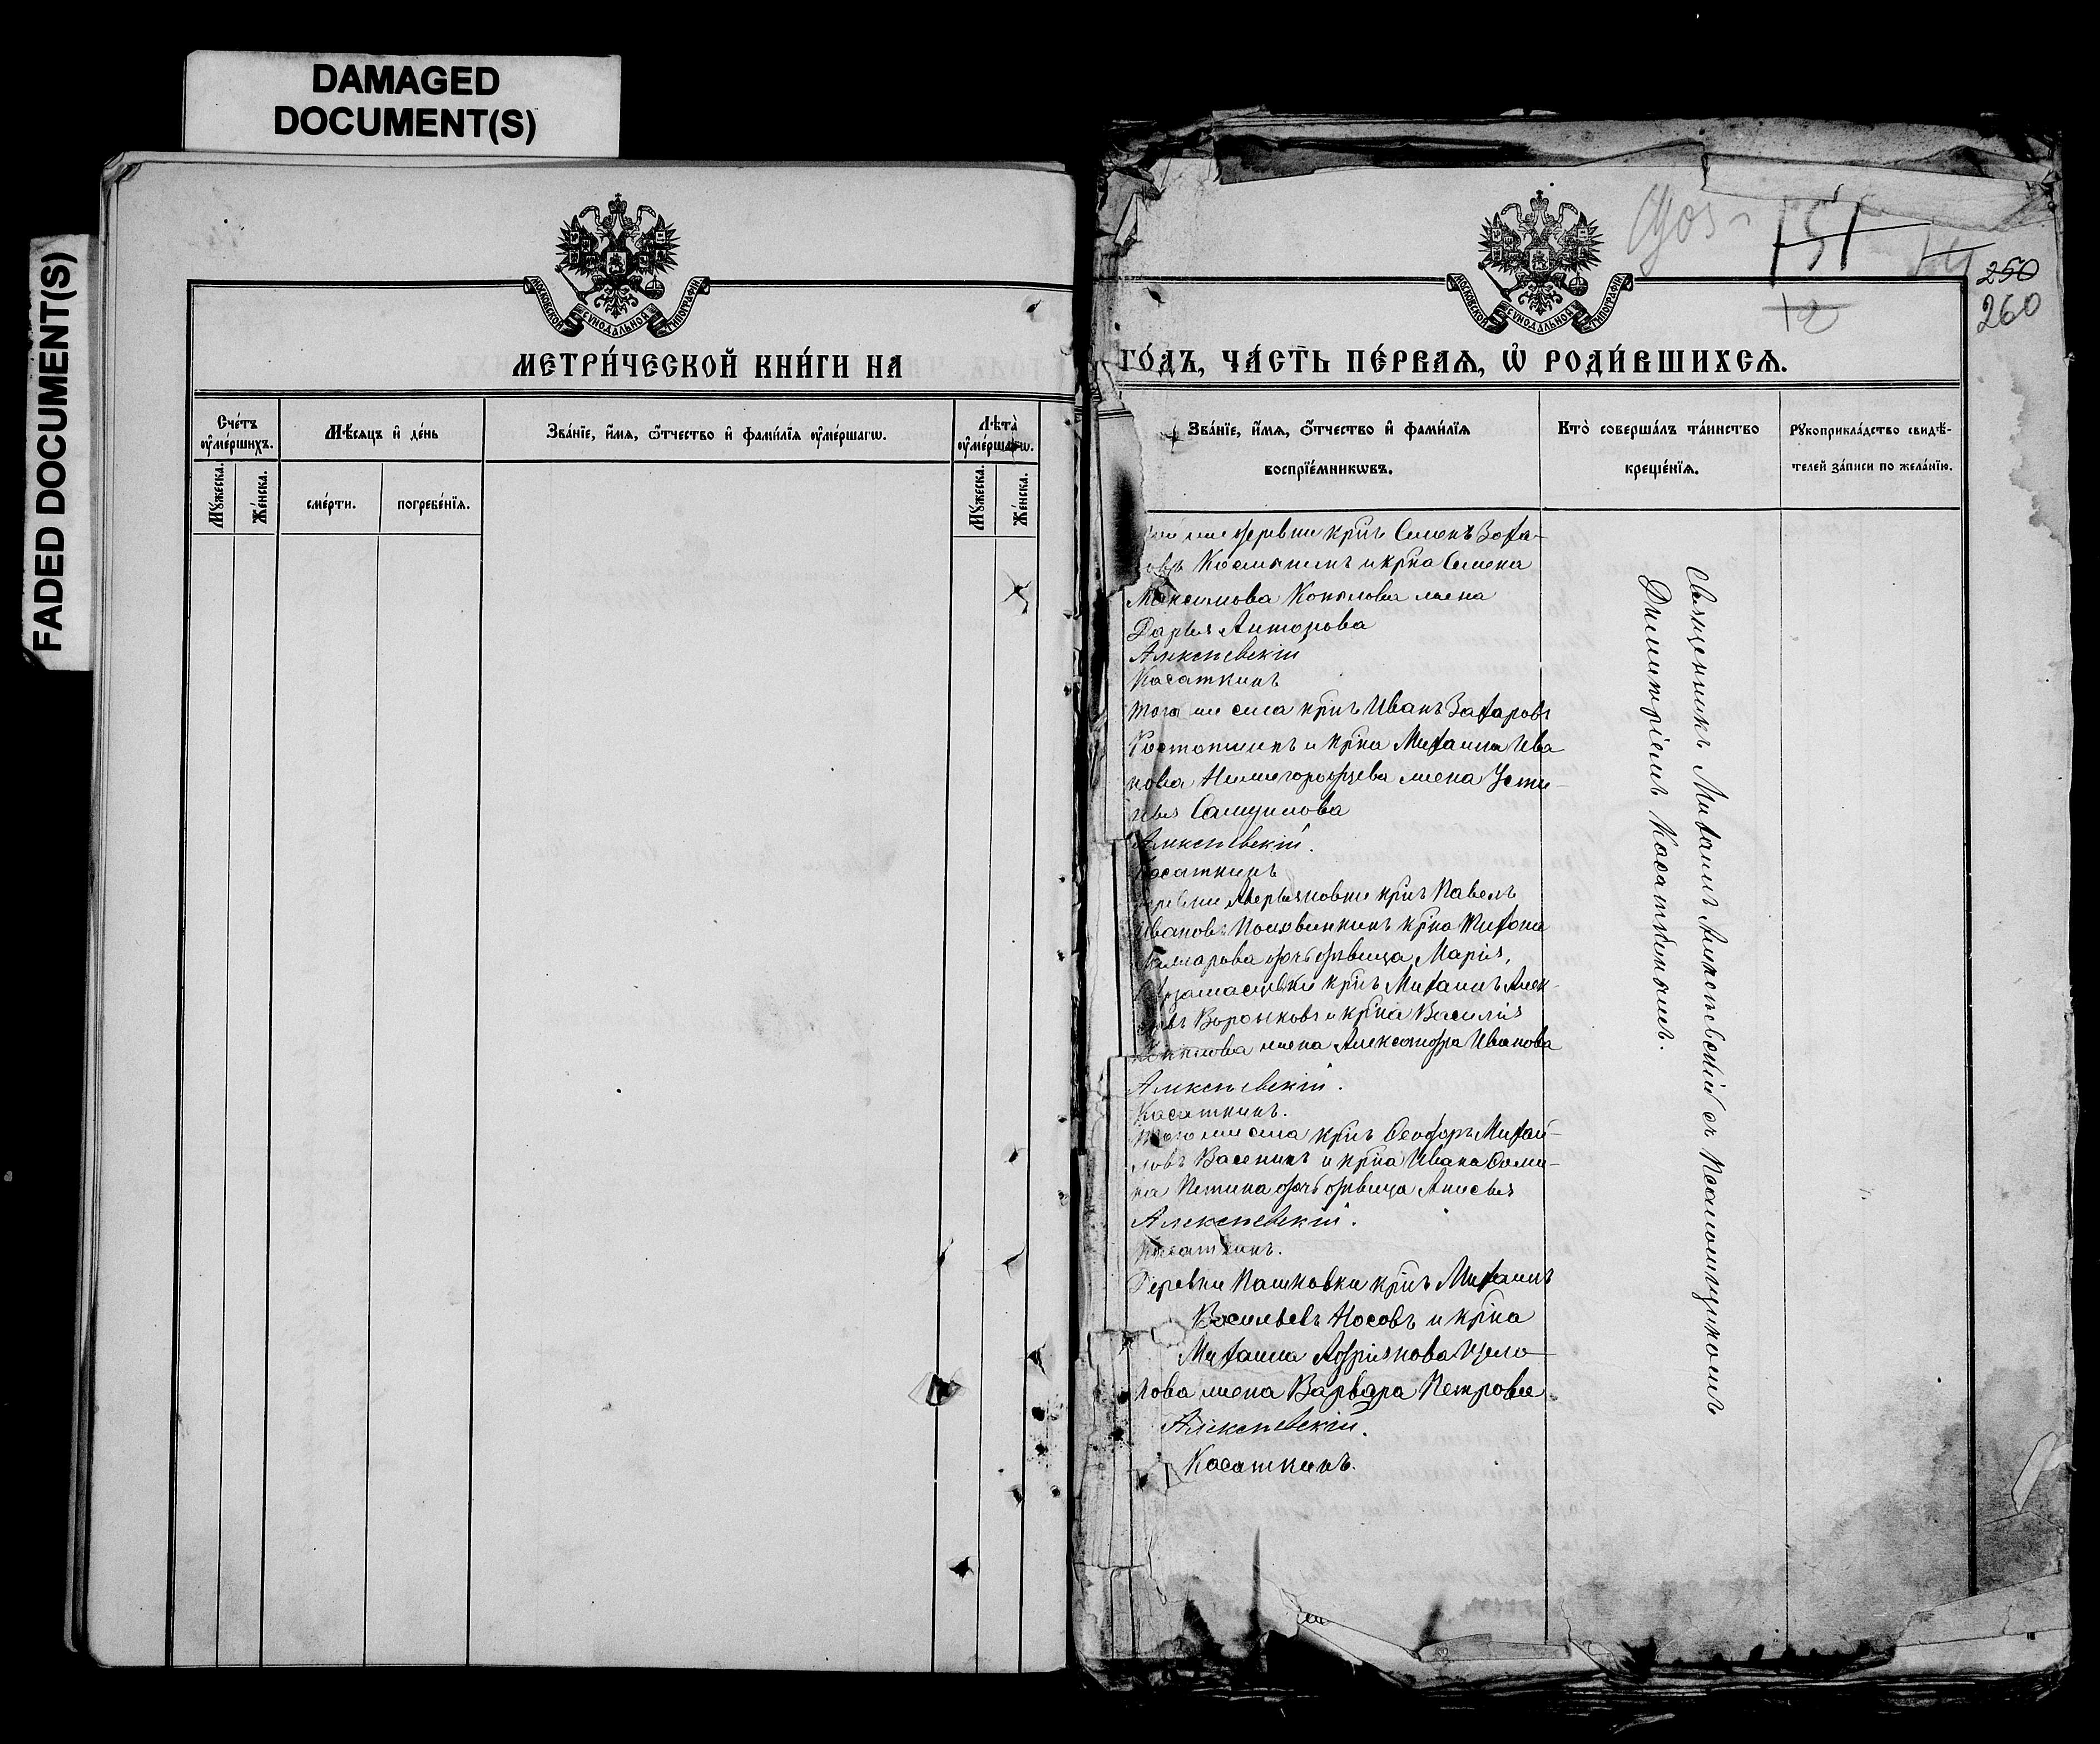 DAMAGED
DOCUMENT(S)
FADED DOCUMENT(S)
МОСКОВСКОЙ СѴНОДАЛЬНОЙ ТИПОГРАФІИ
МЕТРИ́ЧЕСКОЙ КНИ́ГИ НА
Сче́тъ
ᲂу҆ме́ршихъ.
Мѣ́сяцъ и҆ де́нь
Зва́нїе, и҆́мя, ѻ҆́тчество и҆ фами́лїя ᲂу҆ме́ршагѡ.
Лѣ́та
ᲂу҆ме́ршагѡ.
Мꙋ́жеска.
Же́нска.
сме́рти.
погребе́нїя.
Мꙋ́жеска.
Же́нска.
151
12
250
260
МОСКОВСКОЙ СѴНОДАЛЬНОЙ ТИПОГРАФІИ
ГО́ДЪ, ЧА́СТЬ ПЕ́РВАЯ, Ѡ҆ РОДИ́ВШИХСЯ.
Зва́нїе, и҆́мя, ѻ҆́тчество и҆ фами́лїя
воспрїе́мникѡвъ.
Кто̀ соверша́лъ та́инство
креще́нїя.
Рꙋкоприкла́дство свидѣ́-
телей за́писи по жела́нїю.
же деревни крнъ Семенъ Заха-
ровъ Космынинъ и крна Семена
Максимова Копылова жена
Дарья Антонова
Алексѣевскій
Касаткинъ
того же села крнъ Иванъ Захаровъ
Костопшинъ и крна Михаила Ива
нова Нижегородцева жена Усти-
нья Самуилова
Алексѣевскій.
Касаткинъ
деревни Аверьяновки крнъ Павелъ
Ивановъ крна
дочь дѣвица Марія,
Арзамасцевки крнъ Михаилъ Алек-
ѣевъ Воронковъ и крна Василія
жена Александра Иванова
Алексѣевскій.
Касаткинъ.
того же села крнъ Ѳеодоръ Михай-
ловъ Васенинъ и крна Ивана Ѳоми-
на Петина дочь дѣвица Анисья
Алексѣевскій.
Касаткинъ.
Деревни Пашковки крнъ Михаилъ
Васильевъ Носовъ и крна
Михаила Адріянова Щего-
лова жена Варвара Петрова
Алексѣевскій.
Касаткинъ.
Священникъ Михаилъ Алексѣевскій съ Псаломщикомъ
Димитріемъ Касаткинымъ.